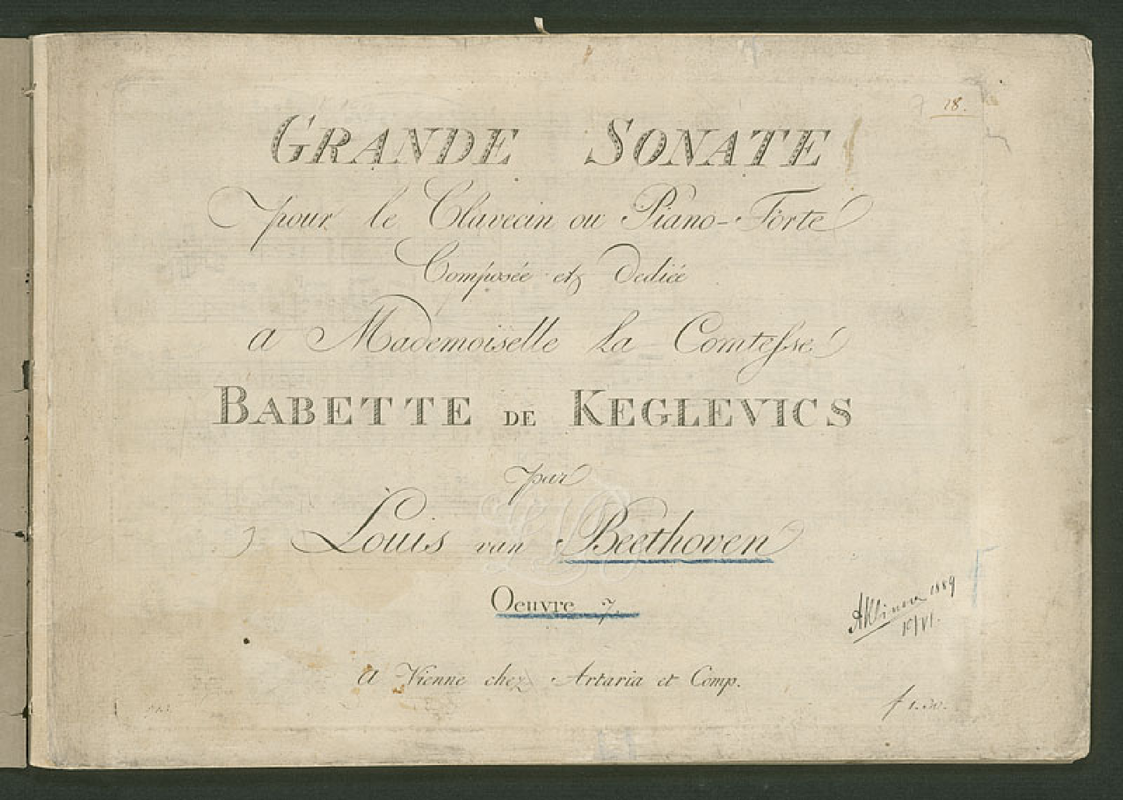 28.
GRANDE SONATE
pour le Clavecin ou Piano-Forte
Composée et Dediée
a Mademoiselle la Comtesse
BABETTE DE KEGLEVICS
par
Louis van Beethoven
Oeuvre 7.
1889
19/VI.
A Vienne chez Artaria et Comp.
f 1.30.